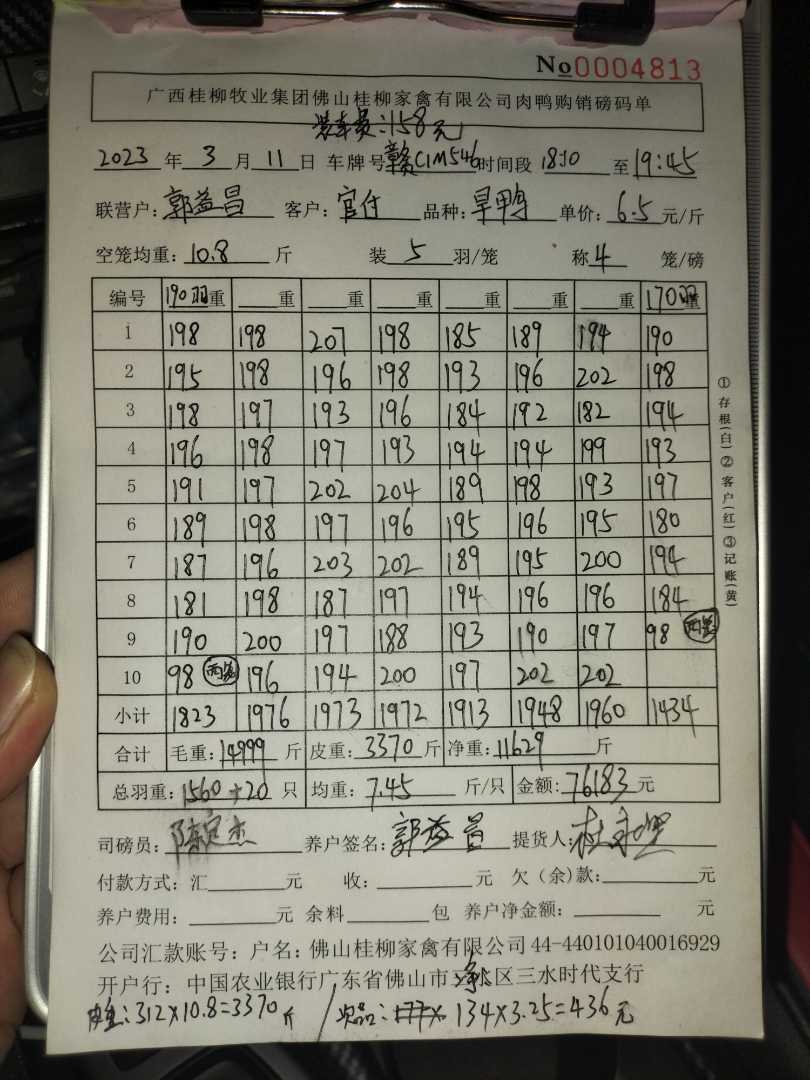 No0004813
广西桂柳牧业集团佛山桂柳家禽有限公司肉鸭购销磅码单
装车员:158元
2023年3月11日 车牌号赣C1M546时间段18:10至19:45
联营户:郭益昌 客户:官付 品种:旱鸭 单价:6.5元/斤
空笼均重:10.8斤 装5羽/笼 称4笼/磅
编号 190羽重 重 重 重 重 重 重 170羽重
1 198 198 207 198 185 189 194 190
2 195 198 196 198 193 196 202 198
3 198 197 193 196 184 192 182 194
4 196 198 197 193 194 194 199 193
5 191 197 202 204 189 198 193 197
6 189 198 197 196 195 196 195 180
7 187 196 203 202 189 195 200 194
8 181 198 187 197 194 196 196 184
9 190 200 197 188 193 190 197 98 两笼
10 98 两笼 196 194 200 197 202 202
小计 1823 1976 1973 1972 1913 1948 1960 1434
合计 毛重:14999斤 皮重:3370斤 净重:11629斤
总羽重:1560+20只 均重:7.45斤/只 金额:76183元
司磅员:陈定杰 养户签名:郭益昌 提货人:杜
付款方式:汇 元 收: 元 欠(余)款: 元
养户费用: 元 余料 包 养户净金额: 元
公司汇款账号:户名:佛山桂柳家禽有限公司44-440101040016929
开户行:中国农业银行广东省佛山市三水区三水时代支行
312×10.8=3370斤 / 次品: 134×3.25=436元
①存根(白)②客户(红)③记账(黄)